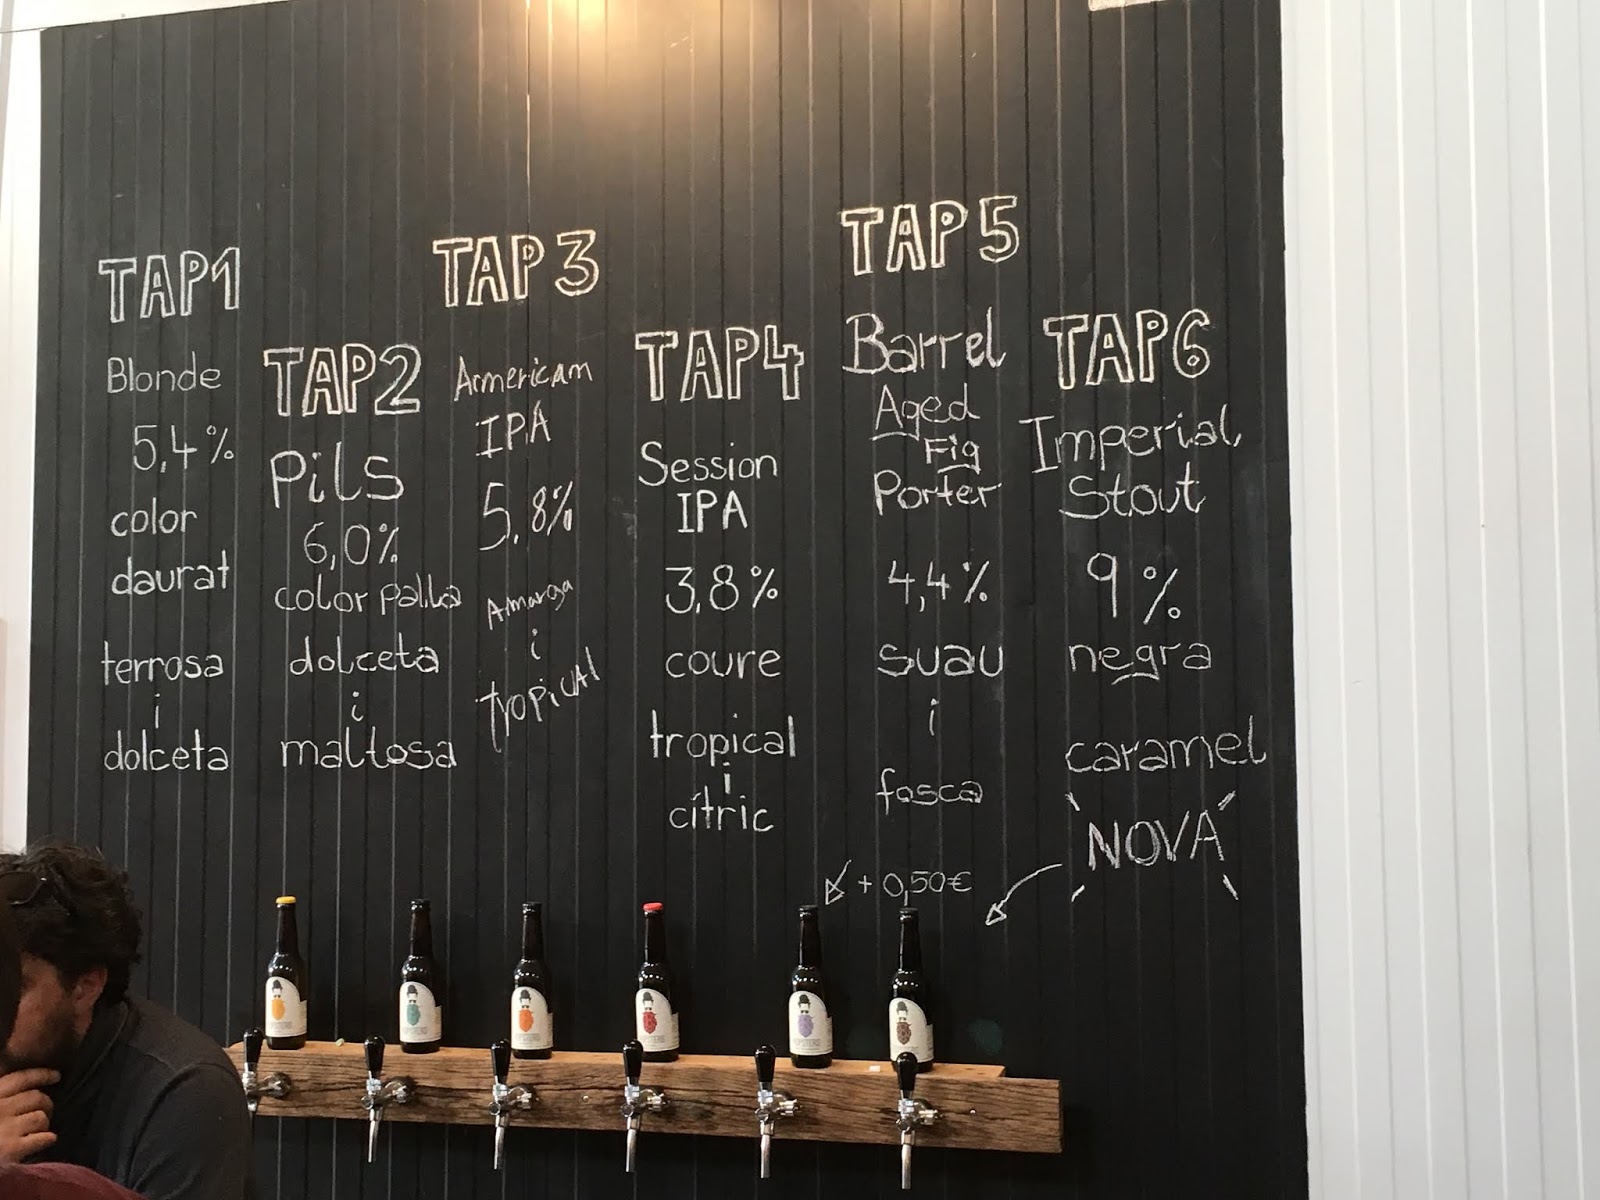 TAP1
Blonde
5,4%
color
daurat
terrosa
i
dolceta
TAP2
Pils
6,0%
color palla
dolceta
i
maltosa
TAP 3
American
IPA
5.8%
Amarga
i
tropical
TAP4
Session
IPA
3,8%
coure
tropical
i
cítric
TAP 5
Barrel
Aged
Fig
Porter
4,4%
suau
i
fosca
+ 0,50€
TAP6
Imperial
Stout
9%
negra
caramel
NOVA